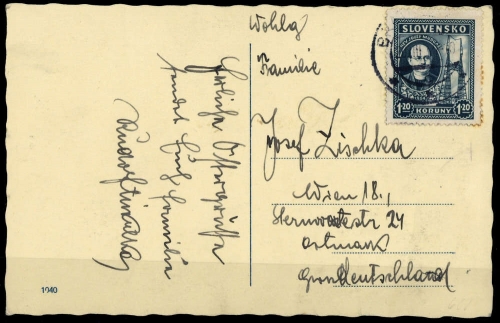 SLOVENSKO
1·20 KORUNY 1·20
Wohlg
Familie
Josef Zischka
Wien 18.,
Sternwartestr 24
Ostmark
Grossdeutschland
Fröhliche Ostergrüße
sendet Euch Familie
1940